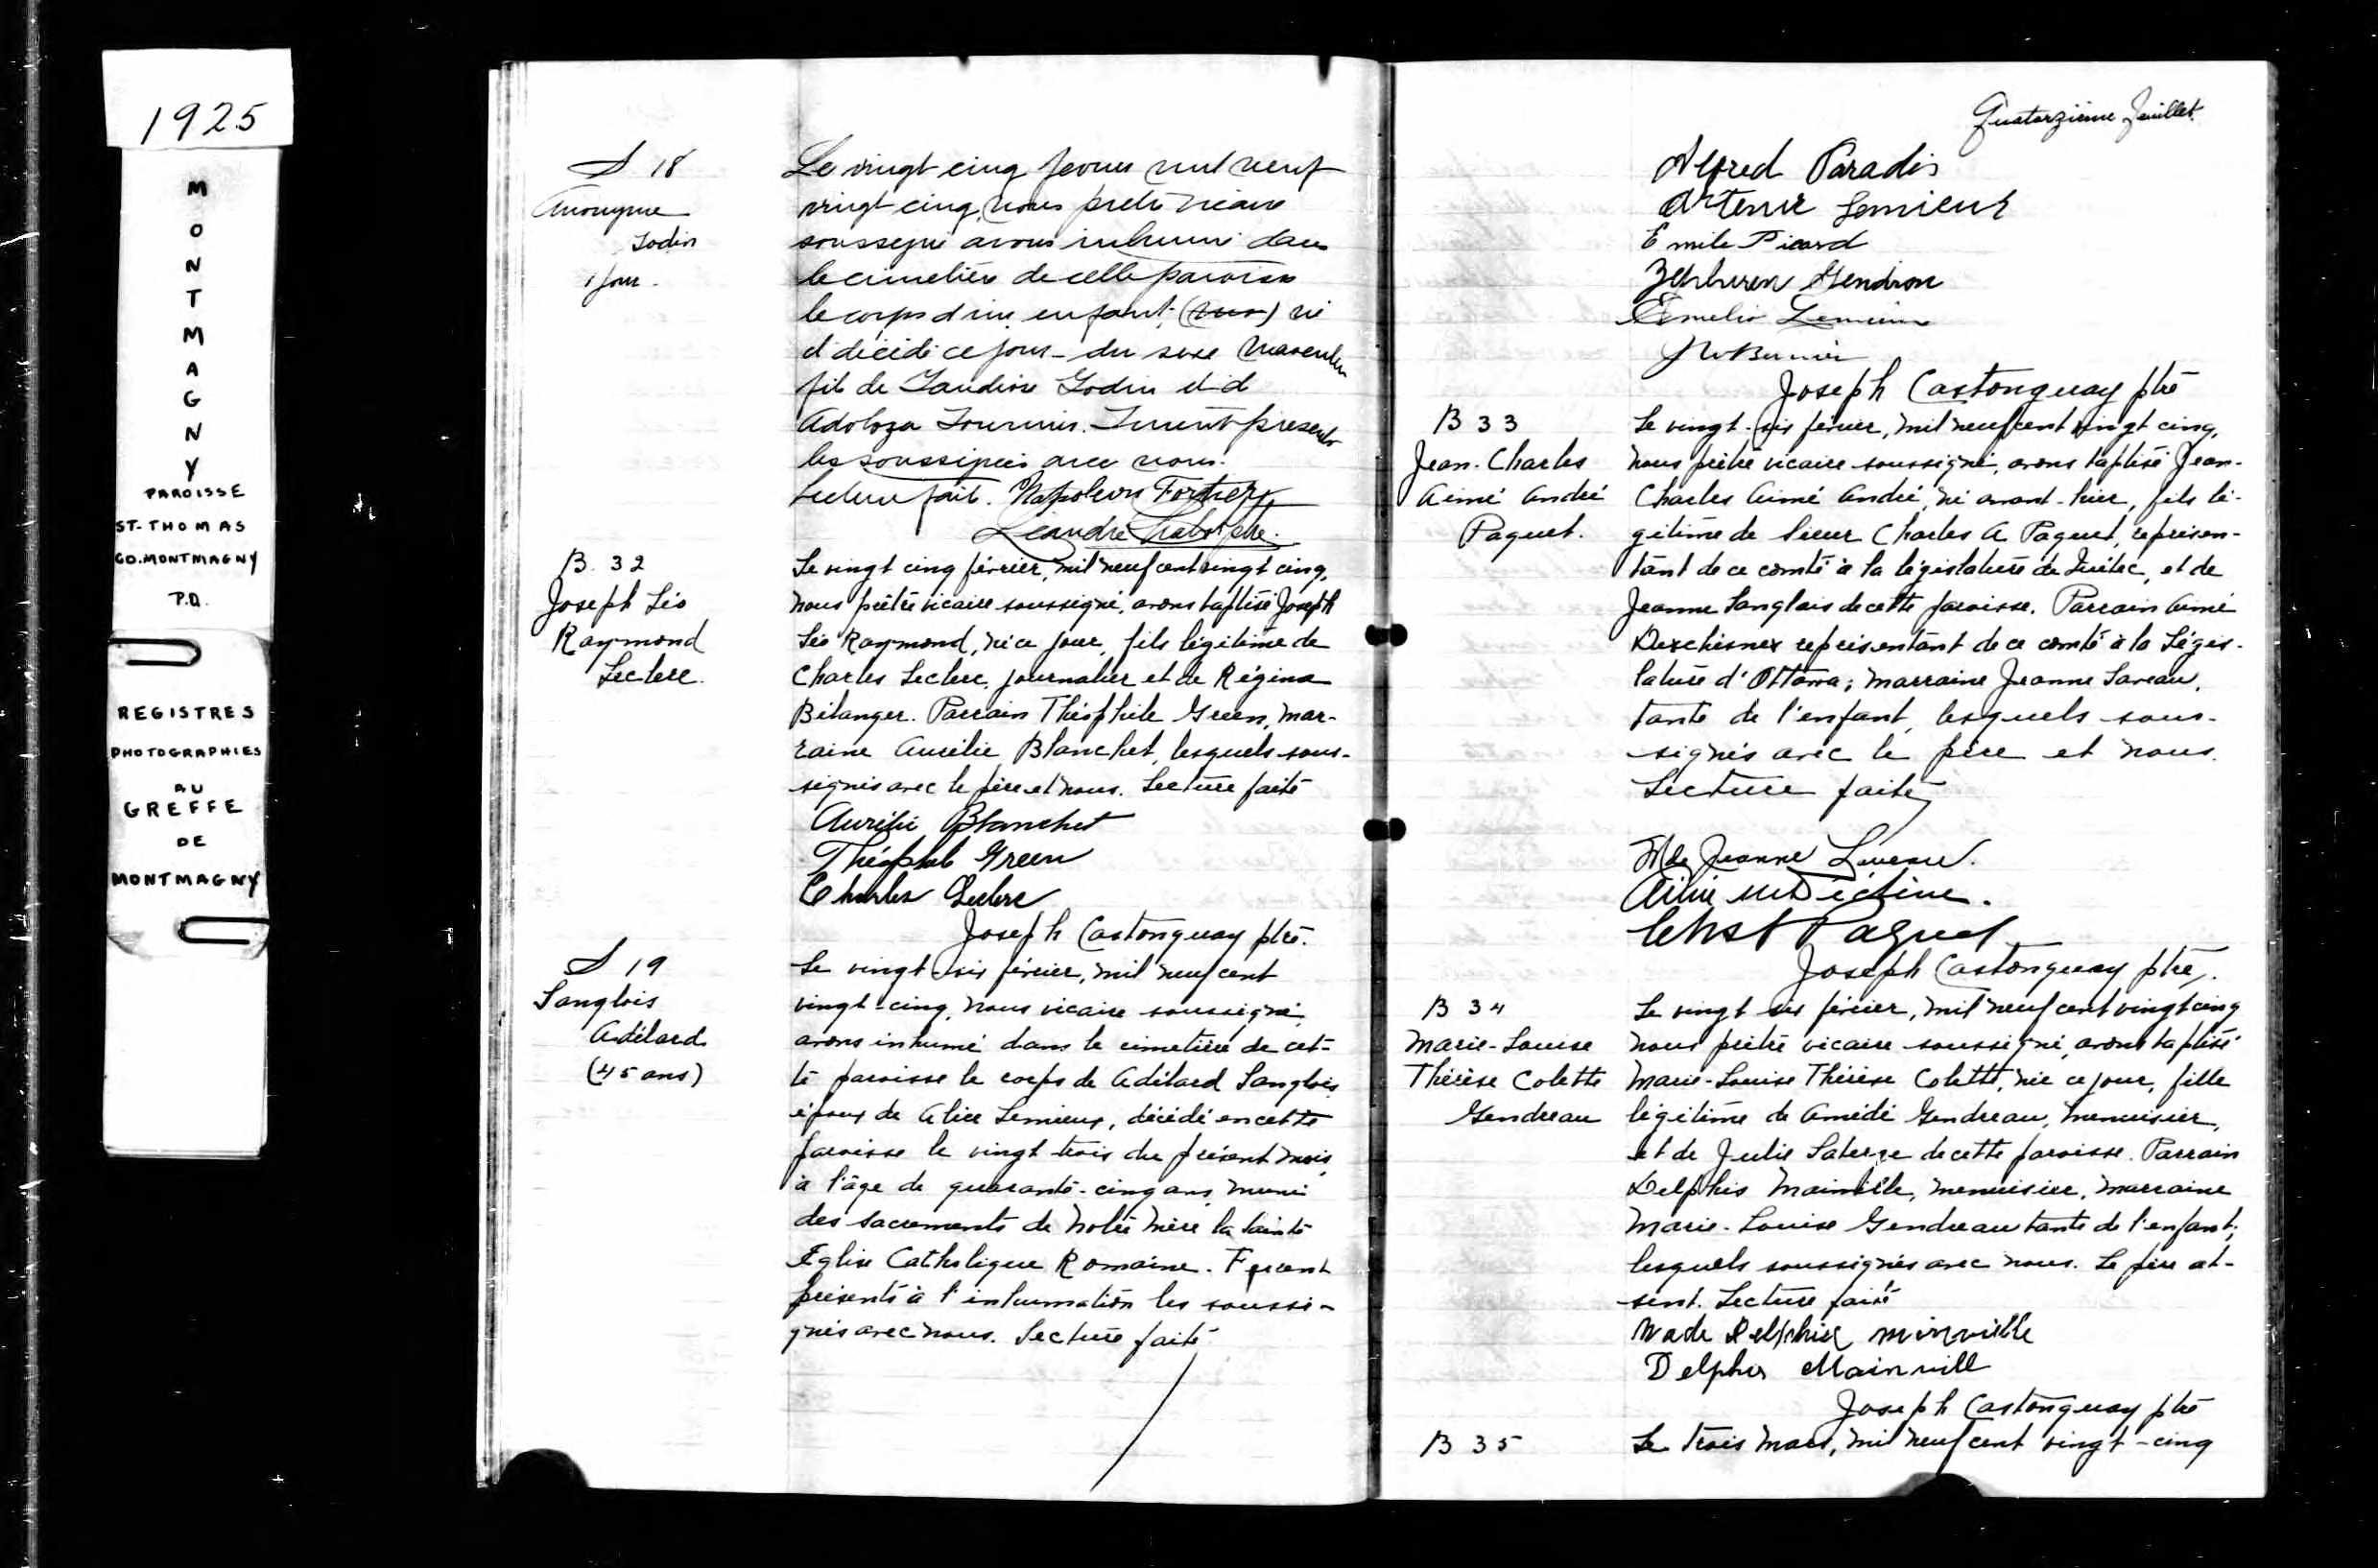 1925
MONTMAGNY
PAROISSE
ST-THOMAS
CO. MONTMAGNY
P.Q.
REGISTRES
PHOTOGRAPHIES
AU
GREFFE
DE
MONTMAGNY
S 18
Anonyme
Godin
1 jour.
Le vingt cinq fevrier mil neuf
vingt cinq, nous prêtre vicaire
soussigné avons inhumé dans
le cimetière de cette paroisse
le corps d'un enfant, né
et décédé ce jour du sexe masculin
fils de Godin et d
Adoloza Fournier. Furent présents
les soussignés avec nous.
Lecture faite. Napoleon Fortier
Leandre ptre.
B. 32
Joseph Léo
Raymond
Leclerc.
Le vingt cinq février, mil neuf cent vingt cinq,
nous prêtre vicaire soussigné, avons baptisé Joseph
Léo Raymond, né ce jour, fils légitime de
Charles Leclerc, journalier et de Régina
Bélanger. Parrain Théophile Green, mar-
raine Aurélie Blanchet, lesquels sous-
signés avec le père et nous. Lecture faite
Aurélie Blanchet
Théophile Green
Charles Leclerc
Joseph Castonguay ptre.
S 19
Langlois
Adélard
(45 ans)
Le vingt-six février, mil neuf cent
vingt-cinq, nous vicaire soussigné,
avons inhumé dans le cimetière de cet-
te paroisse le corps de Adélard Langlois
époux de Alice Lemieux, décédé en cette
paroisse le vingt trois du présent mois,
à l'âge de quarante-cinq ans, muni
des sacrements de notre mère la Sainte
Eglise Catholique Romaine. Furent
présents à l'inhumation les soussi-
gnés avec nous. Lecture faite.
Quatorzième feuillet.
Alfred Paradis
Lemieux
Emile Picard
Gendron
Lemieux
Bernier
Joseph Castonguay ptre
B 33
Jean-Charles
Aimé André
Paquet.
Le vingt-six février, mil neuf cent vingt cinq,
nous prêtre vicaire soussigné, avons baptisé Jean-
Charles Aimé André, né avant-hier, fils lé-
gitime de Sieur Charles A Paquet, représen-
tant de ce comté à la législature de Québec, et de
Jeanne Langlais de cette paroisse. Parrain Aimé
Deschesnes représentant de ce comté à la Légis-
lature d'Ottawa; marraine Jeanne Laveau,
tante de l'enfant, lesquels sous-
signés avec le père et nous.
Lecture faite
Mlle Jeanne Laveau.
Paquet
Joseph Castonguay ptre.
B 34
Marie-Louise
Thérèse Colette
Gendreau
Le vingt six février, mil neuf cent vingt cinq
nous prêtre vicaire soussigné, avons baptisé
Marie-Louise Thérèse Colette, née ce jour, fille
légitime de Amédé Gendreau, menuisier,
et de Julie Laberge de cette paroisse. Parrain
Delphis Mainville, menuisier, marraine
Marie-Louise Gendreau tante de l'enfant;
lesquels soussignés avec nous. Le père ab-
sent. Lecture faite
Made Delphis minville
Delphis Mainvill
Joseph Castonguay ptre
B 35
Le trois mars, mil neuf cent vingt-cinq